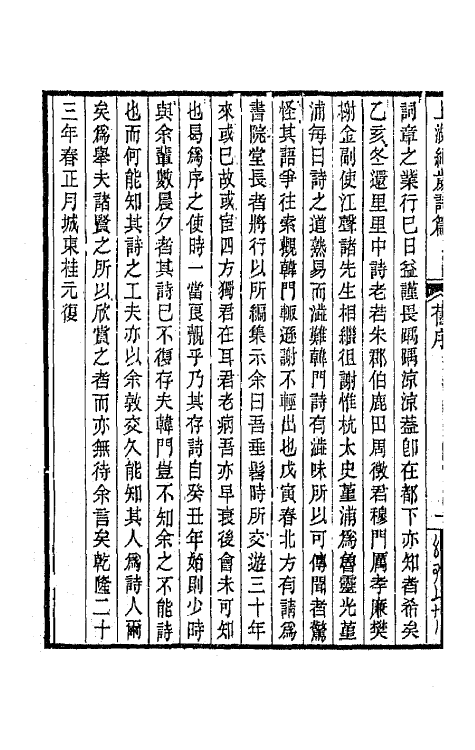 上湖紀歲詩篇
舊序
一
詞章之業行巳日益謹長踽踽涼涼葢卽在都下亦知者希矣
乙亥冬還里里中詩老若朱郡伯鹿田周徵君穆門厲孝廉樊
榭金副使江聲諸先生相繼徂謝惟杭太史菫浦爲魯靈光菫
浦每曰詩之道熟易而澀難韓門詩有澀味所以可傳聞者驚
怪其語爭往索觀韓門輒遜謝不輕出也戊寅春北方有請爲
書院堂長者將行以所編集示余曰吾垂髫時所交遊三十年
來或巳故或宦四方獨君在耳君老病吾亦早衰後會未可知
也曷爲序之使時一當良覿乎乃其存詩自癸丑年始則少時
與余輩數晨夕者其詩巳不復存夫韓門豈不知余之不能詩
也而何能知其詩之工夫亦以余敦交久能知其人爲詩人爾
矣爲舉夫諸賢之所以欣賞之者而亦無待余言矣乾隆二十
三年春正月城東桂元復